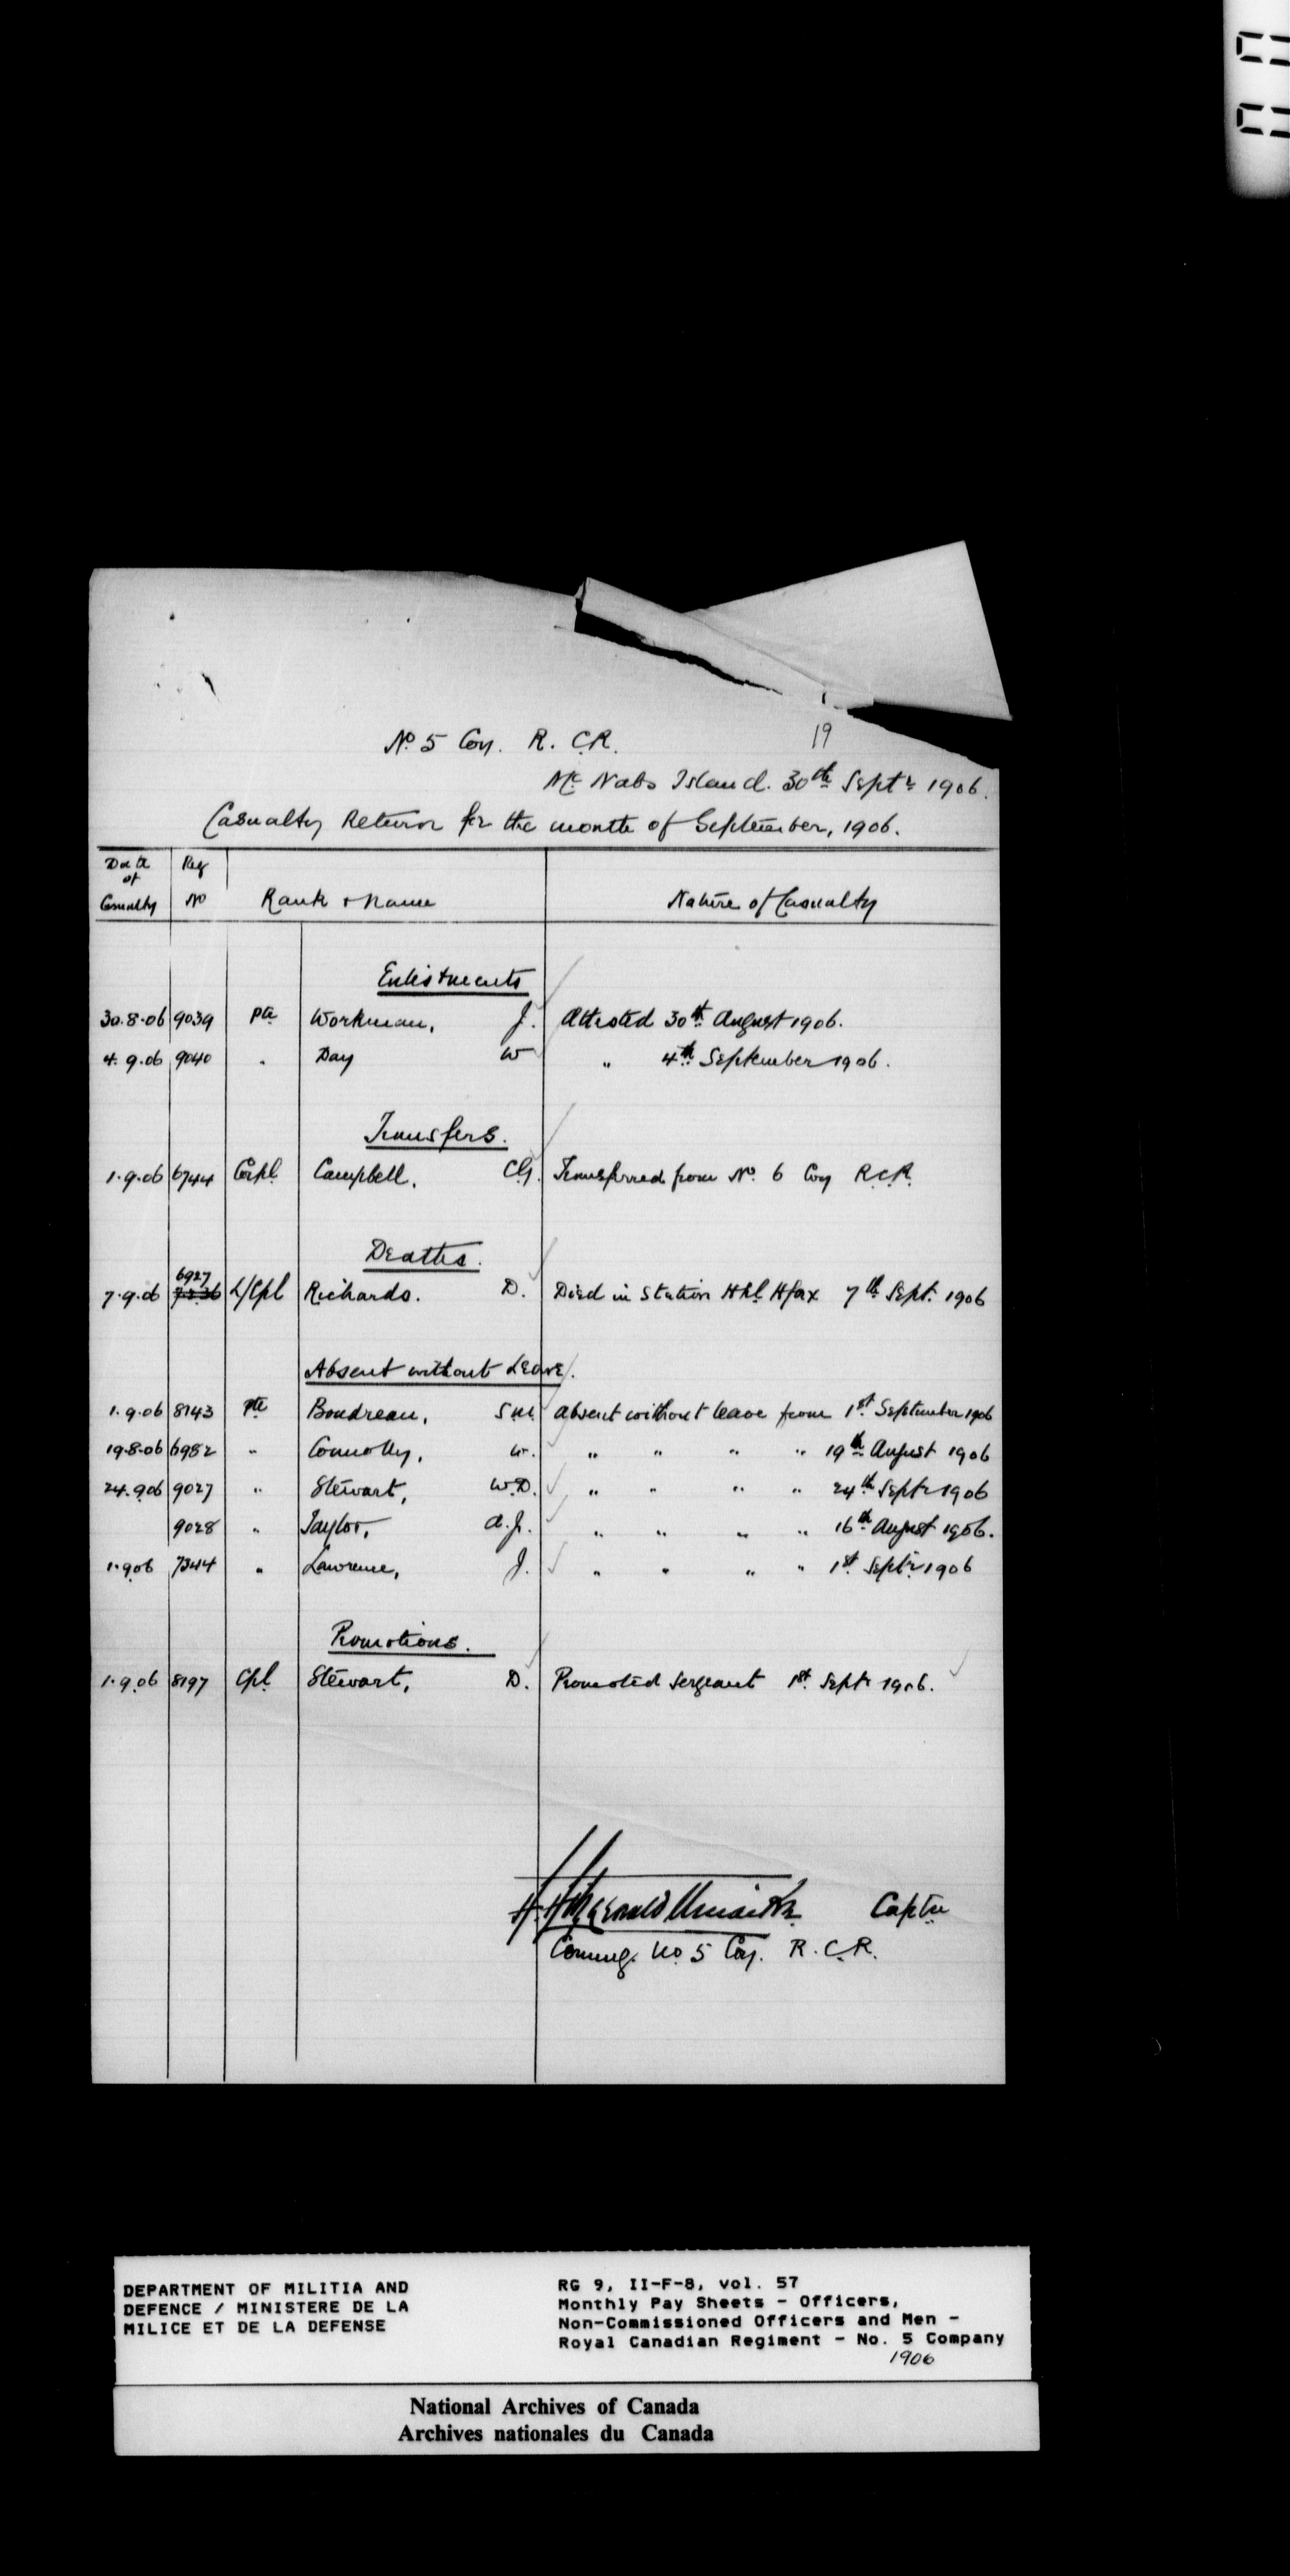 No. 5 Coy. R. C.R. 19
Mc Nabs Island. 30th Septr 1906.
Casualty Return for the month of September, 1906.
Date of Casualty Reg No Rank & Name Nature of Casualty
Enlistments
30.8.06 9039 Pte Workman, J. Attested 30th August 1906.
4.9.06 9040 " Day W " 4th September 1906.
Transfers.
1.9.06 6744 Corpl Campbell, C.G. Transferred from No. 6 Coy R.C.R.
Deaths.
6927
7.9.06 7236 L/Cpl Richards. D. Died in Station Hpl. Hfax 7th Sept. 1906
Absent without Leave.
1.9.06 8143 Pte Boudreau, S.M. Absent without leave from 1st September 1906
19.8.06 6982 " Connolly, W. " " " " 19th August 1906
24.9.06 9027 " Stewart, W.D. " " " " 24th Septr 1906
9028 " Taylor, A.J. " " " " 16th August 1906.
1.9.06 7344 " Lawrence, J. " " " " 1st Septr 1906
Promotions.
1.9.06 8197 Cpl. Stewart, D. Promoted Sergeant 1st Septr 1906.
Captn
Commg. No 5 Coy. R.C.R.
DEPARTMENT OF MILITIA AND
DEFENCE / MINISTERE DE LA
MILICE ET DE LA DEFENSE
RG 9, II-F-8, vol. 57
Monthly Pay Sheets - Officers,
Non-Commissioned Officers and Men -
Royal Canadian Regiment - No. 5 Company
1906
National Archives of Canada
Archives nationales du Canada